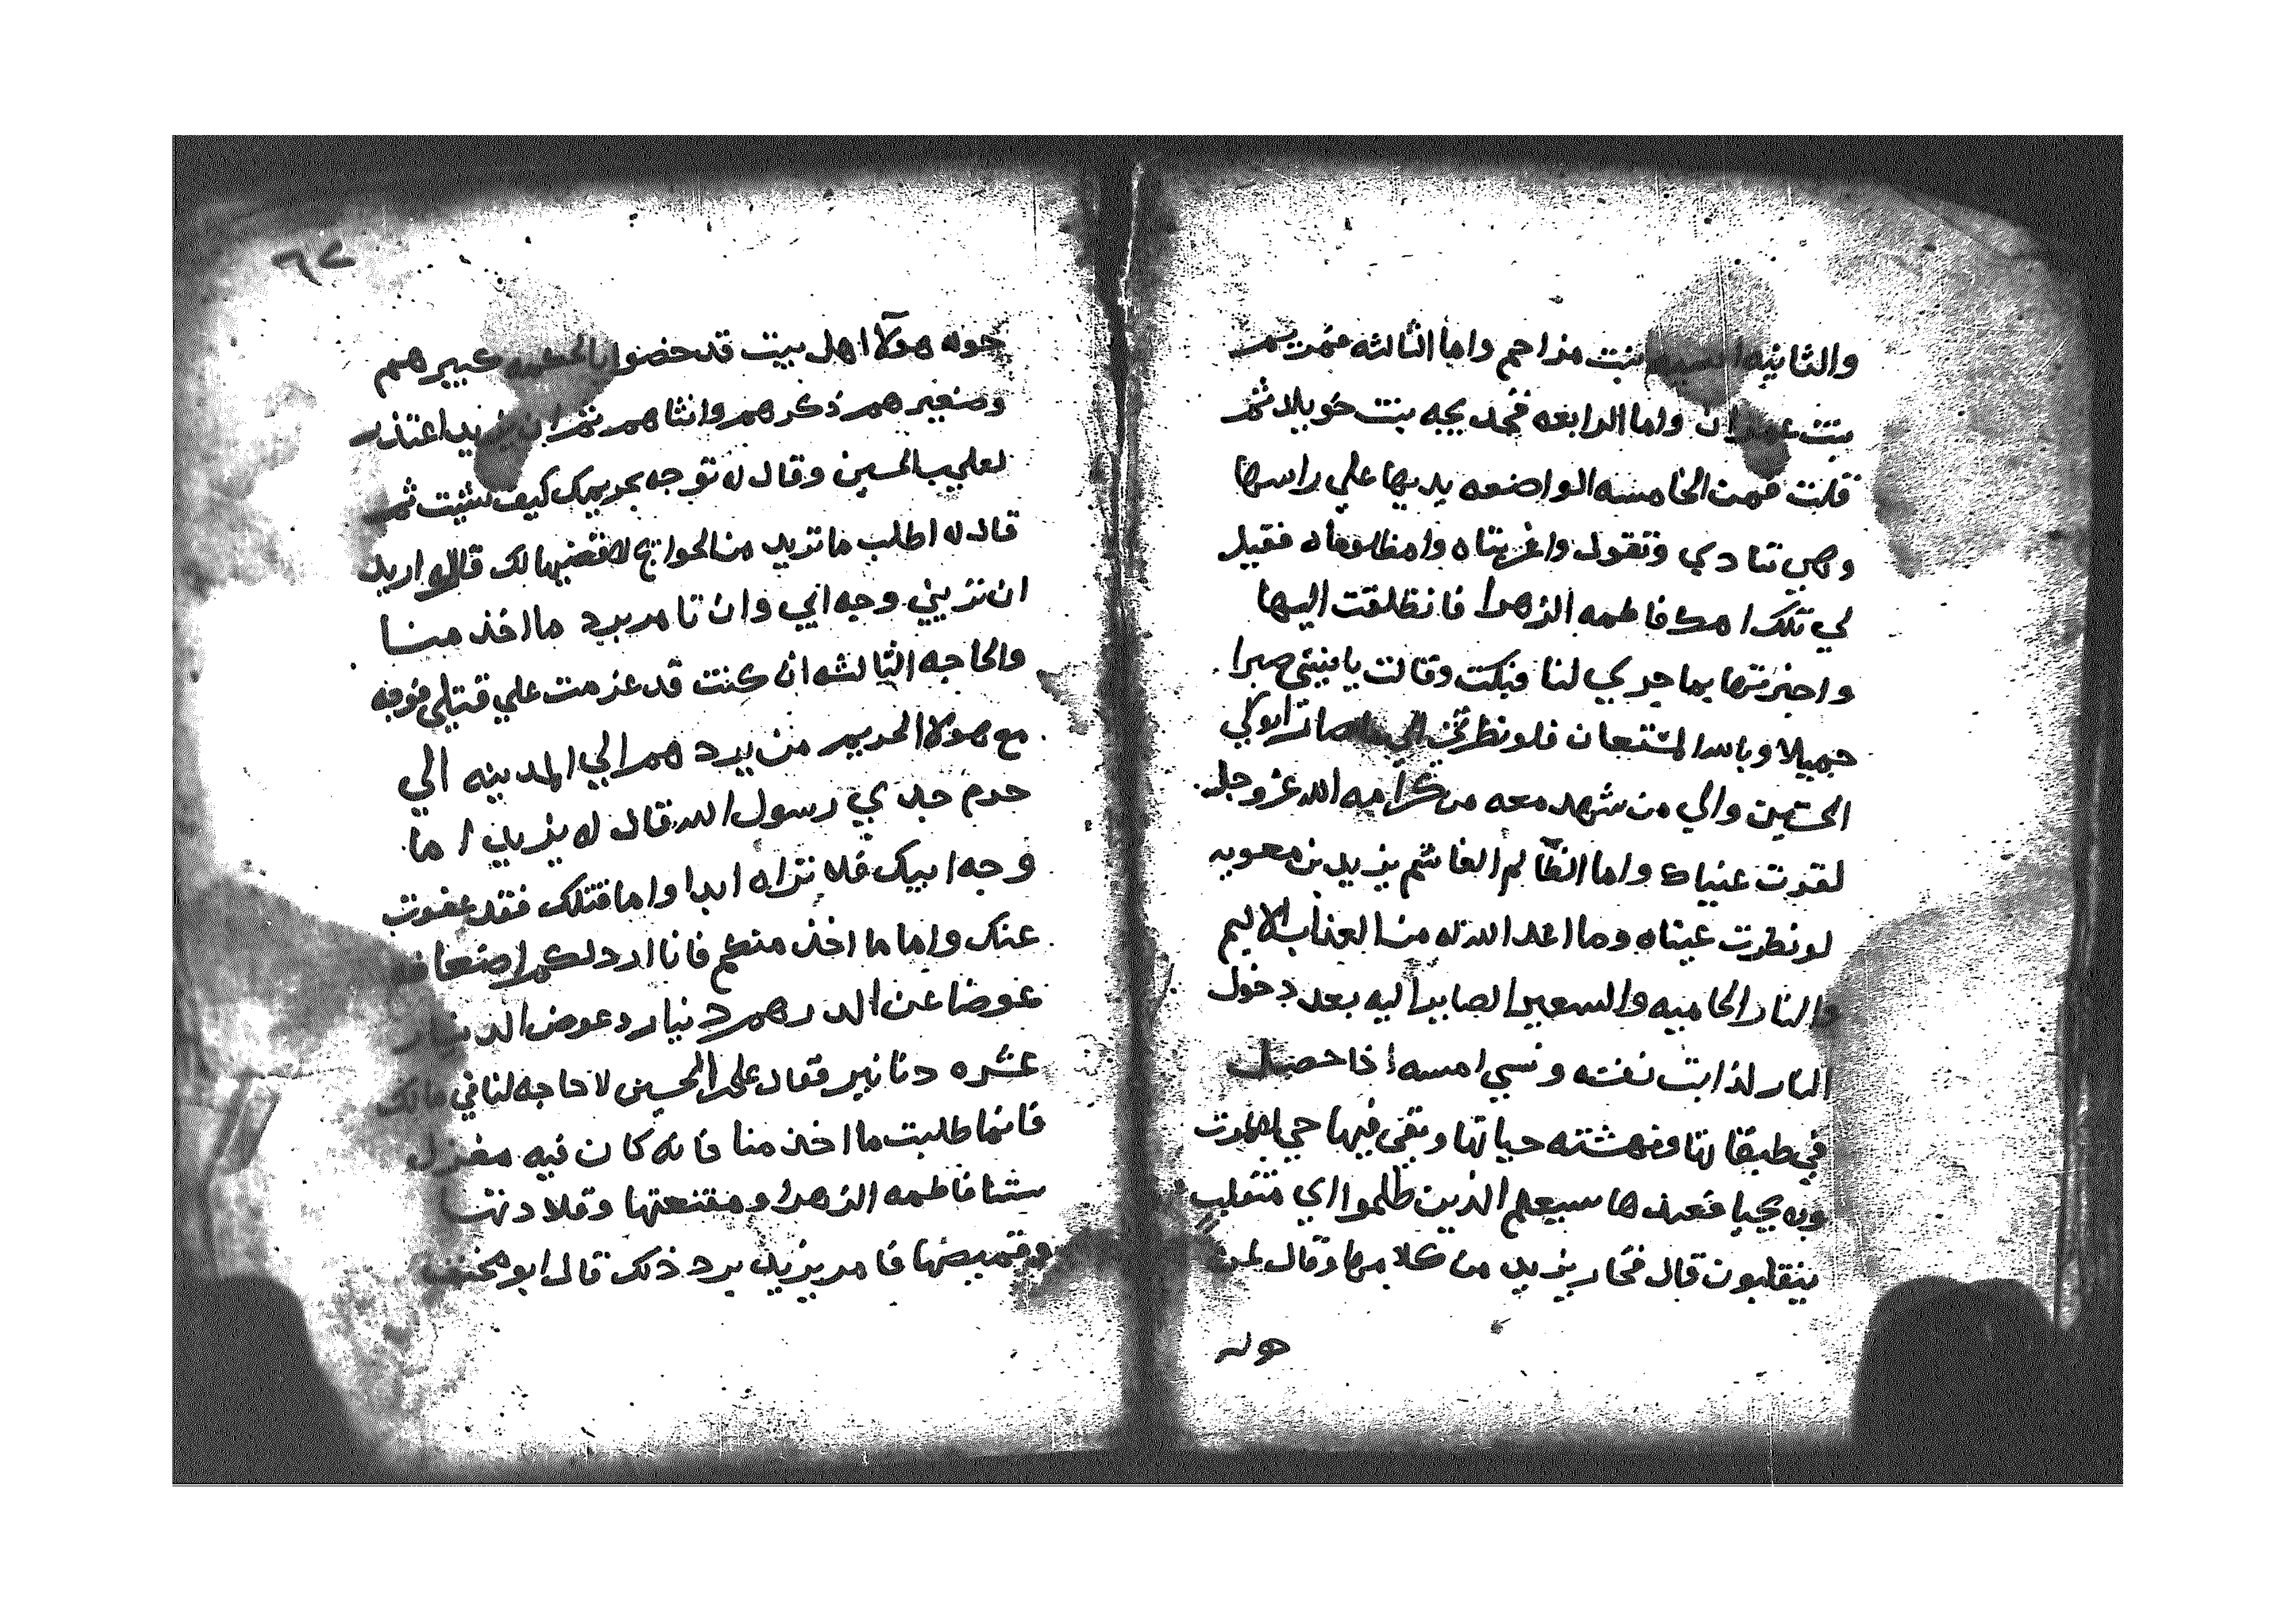 والثانيه اسيه بنت مزاحم واما الثالثه فمريم
بنت عمران واما الرابعه فخديجه بنت خويلد ثم
قلت فمن الخامسه الواضعه يديها علي راسها
وهي تنادي وتقول واغربتاه وامظلوماه فقيل
لي تلك امك فاطمه الزهرا فانطلقت اليها
واخبرتها بما جري لنا فبكت وقالت يا بنيتي صبرا
جميلا وبالله المستعان فلو نظرتي الي ما صار ابوكي
الحسين والي من شهد معه من كرامه الله عز وجل
لقرت عنياك واما الظالم الغاشم يزيد بن معويه
لو نظرت عيناه وما اعد الله له من العذاب الاليم
والنار الحاميه والسعير الصايرا اليه بعد دخول
النار لذابت نفسه ونسي امسه اذا حصل
في طبقاتها ونهشته حياتها وبقي فيها حي لا يموت
ولا يحيا فعندها سيعلم الذين ظلموا اي منقلب
ينقلبون قال فحار يزيد من كلامها وقال لمن
حوله
٦٢
حوله هولآ اهل بيت قد خصوا بالحكمه كبيرهم
وصغيرهم ذكرهم وانثاهم ثم ان يزيد اعتذر
لعلي بن الحسين وقال له توجه بحريمك كيف شئت ثم
قال له اطلب ما تريد من الحوايج لاقضيها لك قال اريد
ان تريني وجه ابي وان تامر برد ما اخذ منا
والحاجه الثالثه ان كنت قد عزمت علي قتلي فوجه
مع هولا الحريم من يردهم الي المدينه الي
حرم جدي رسول الله قال له يزيد اما
وجه ابيك فلا تراه ابدا واما قتلك فقد عفوت
عنك واما ما اخذ منكم فانا ارد لكم اضعافه
عوضا عن الدرهم دينار وعوض الدينار
عشره دنانير فقال علي بن الحسين لا حاجه لنا في مالك
فانما طلبت ما اخذ منا فانه كان فيه مغزل
ستنا فاطمه الزهرا ومقنعتها وقلادتها
وقميصها فامر يزيد برد ذلك قال ابو مخنف